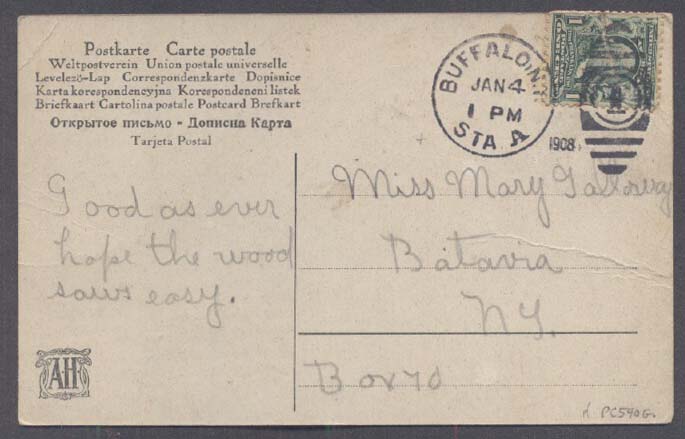 Postkarte Carte postale
Weltpostverein Union postale universelle
Levelező-Lap Correspondenzkarte Dopisnice
Karta korespondencyjna Korespondeneni listek
Briefkaart Cartolina postale Postcard Brefkart
Открытое письмо - Дописна Карта
Tarjeta Postal
BUFFALO, N.Y.
JAN 4
1 PM
STA. A
1908
1
Good as ever
hope the wood
saws easy.
Miss Mary
Batavia
N.Y.
Box 70
AH
PC540G.